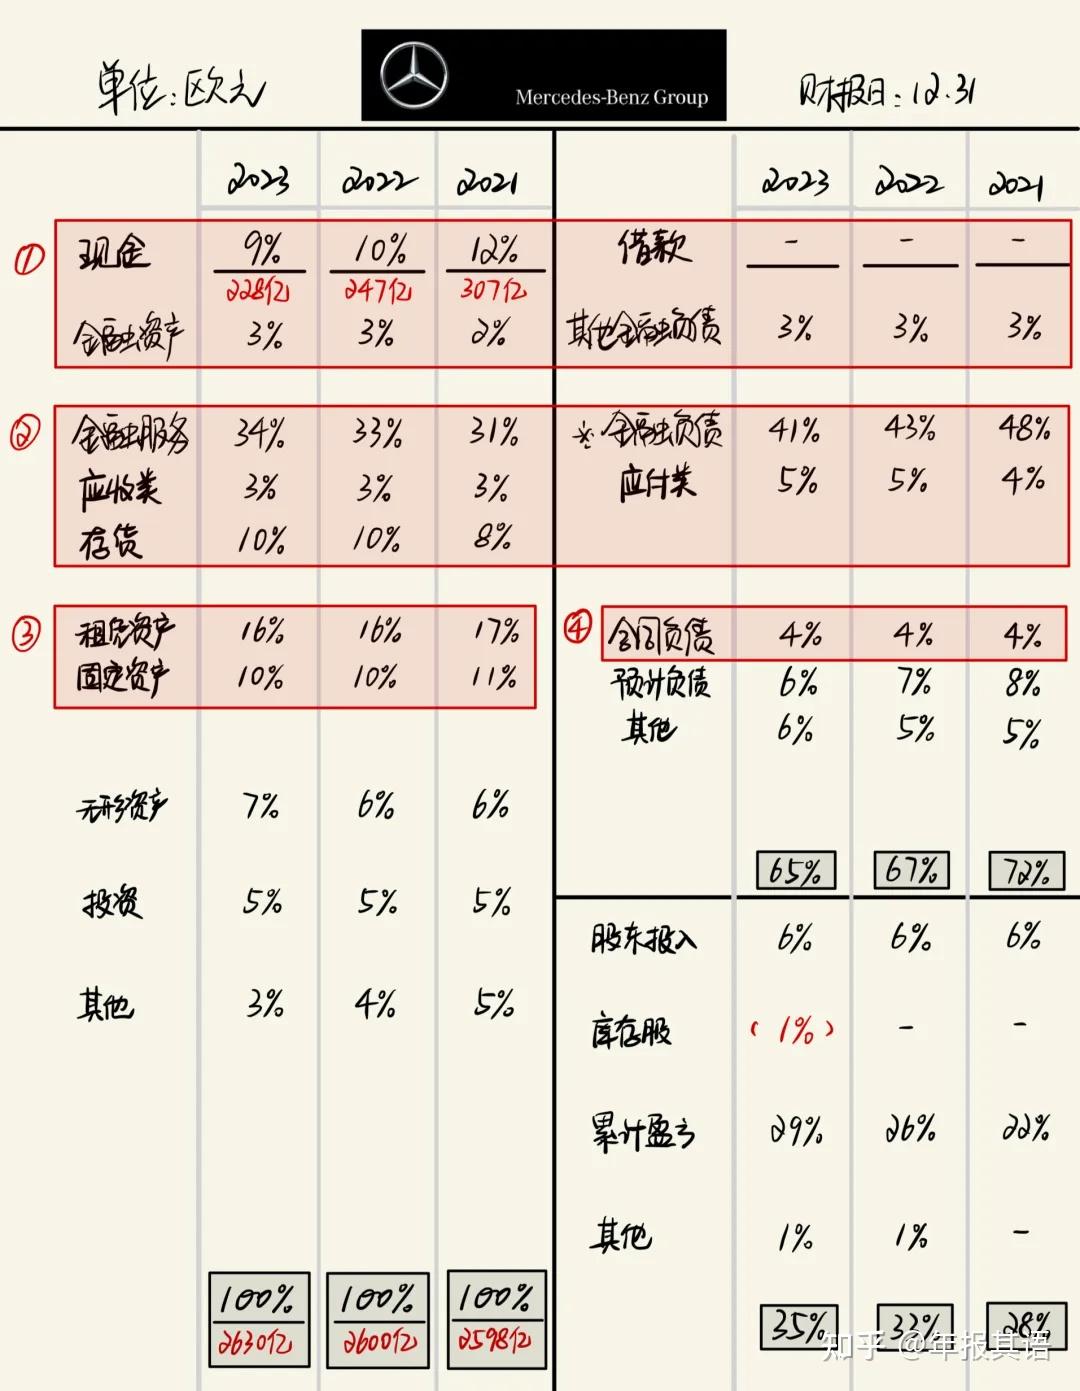 单位:欧元
Mercedes-Benz Group
财报日:12.31
2023 2022 2021
2023 2022 2021
① 现金 9% 10% 12% 借款 - - -
228亿 247亿 307亿
金融资产 3% 3% 2% 其他金融负债 3% 3% 3%
② 金融服务 34% 33% 31% ※金融负债 41% 43% 48%
应收类 3% 3% 3% 应付类 5% 5% 4%
存货 10% 10% 8%
③ 租赁资产 16% 16% 17% ④ 合同负债 4% 4% 4%
固定资产 10% 10% 11% 预计负债 6% 7% 8%
其他 6% 5% 5%
无形资产 7% 6% 6%
65% 67% 72%
投资 5% 5% 5% 股东投入 6% 6% 6%
其他 3% 4% 5% 库存股 (1%) - -
累计盈亏 29% 26% 22%
其他 1% 1% -
100% 100% 100%
2630亿 2600亿 2598亿
35% 33% 28%
知乎 @年报其语